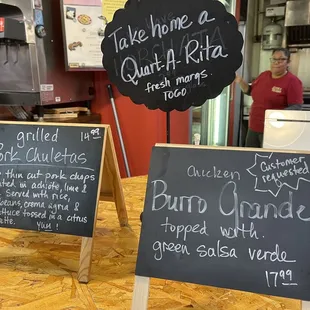 Take home a
Quart-A-Rita
fresh margs.
TOGO
grilled 14.99
Pork Chuletas
thin cut pork chops
in achiote, lime &
Served with rice,
beans, crema agria &
lettuce tossed in a citrus
Yum!
Chicken
Customer
requested
Burro Grande
topped with
green salsa verde
17.99